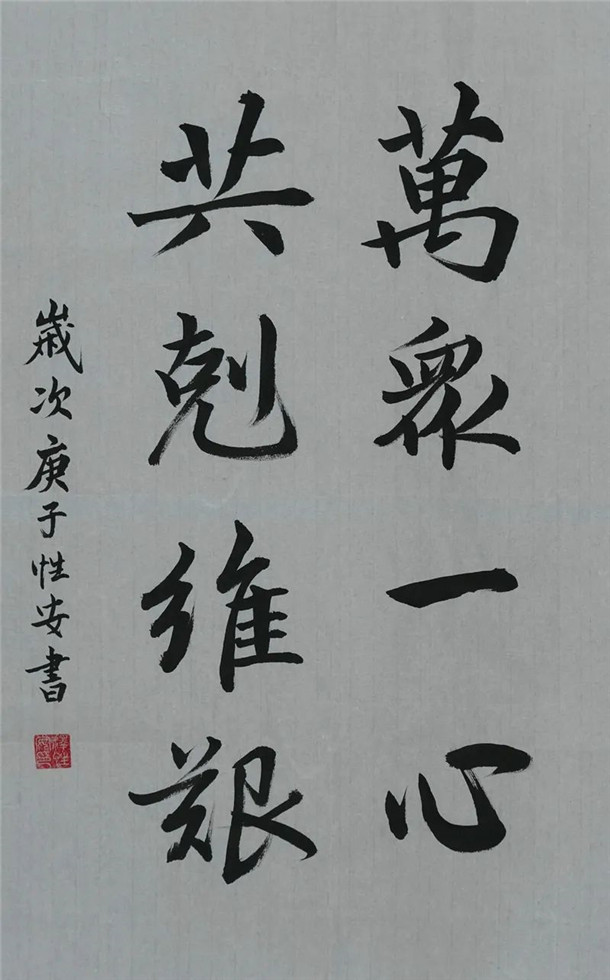 萬眾一心
共剋維艱
歲次庚子性安書